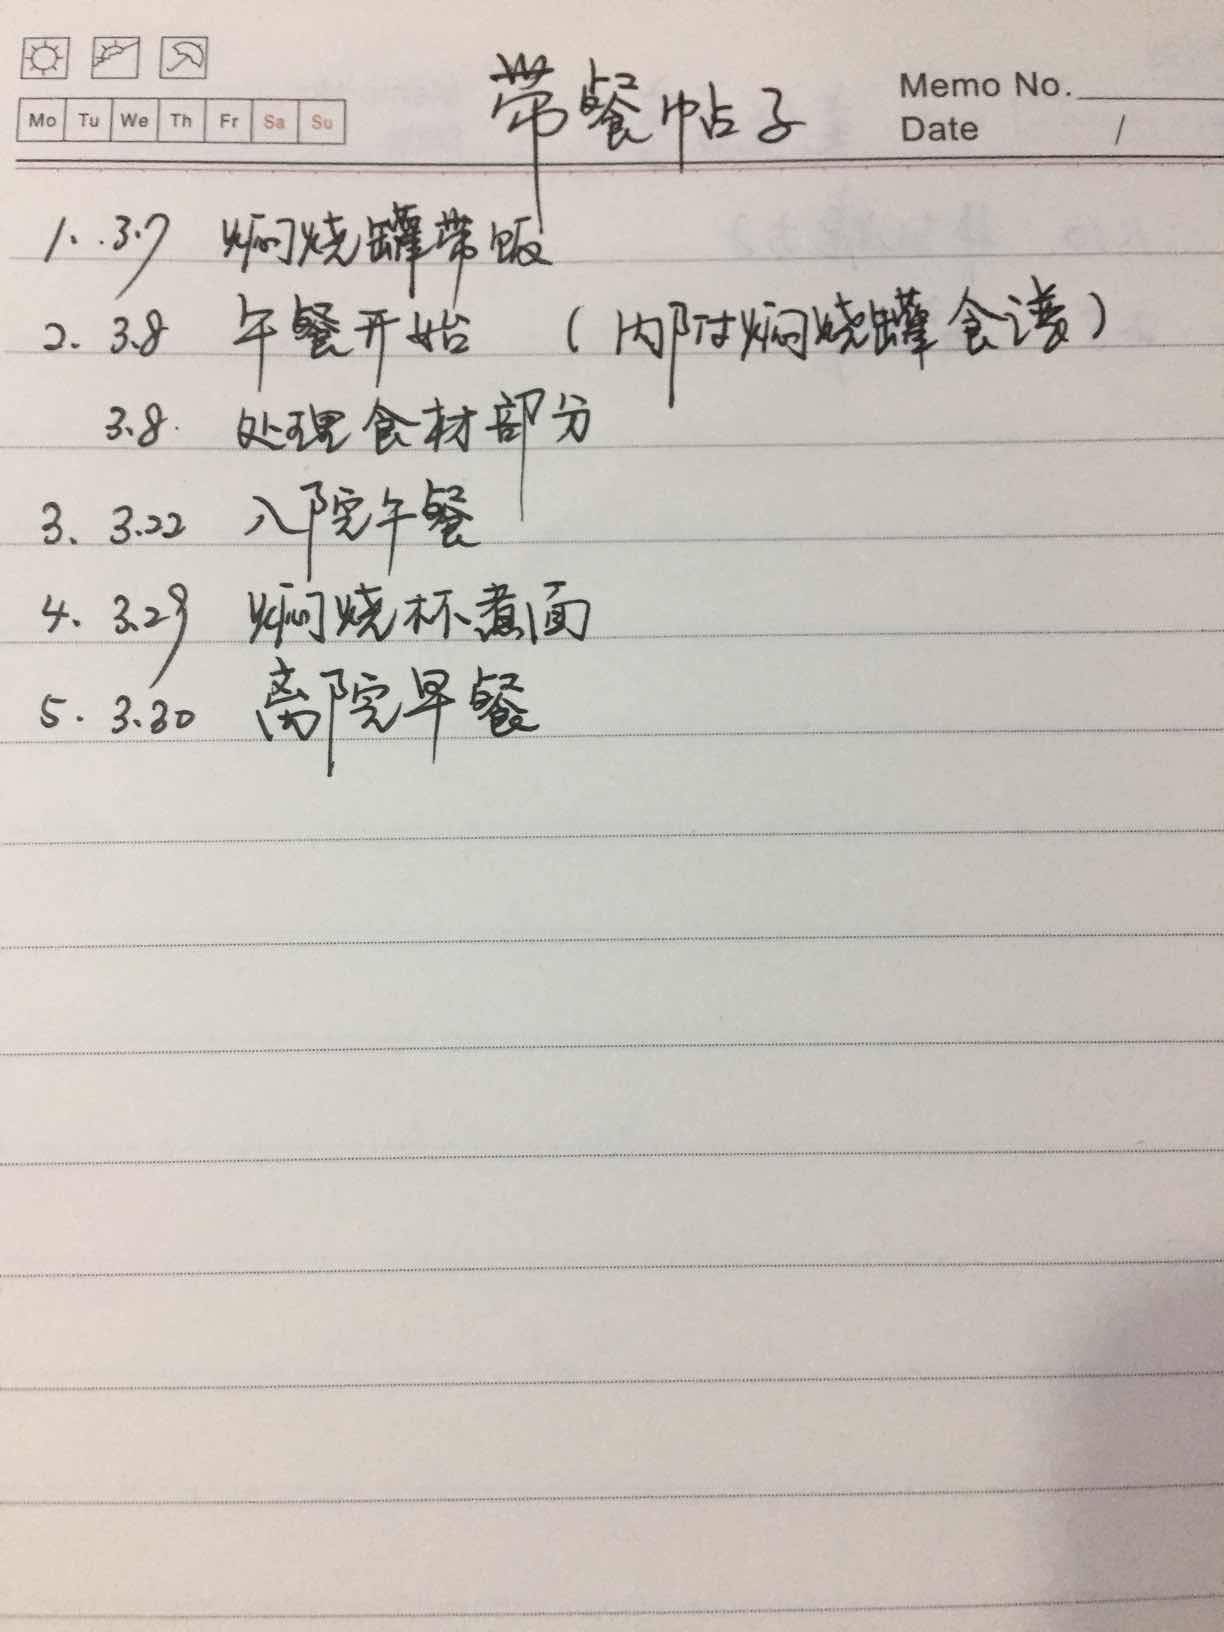 带餐帖子
Memo No.
Mo Tu We Th Fr Sa Su
Date /
1. 3.7 焖烧罐带饭
2. 3.8 午餐开始 （内附焖烧罐食谱）
3.8. 处理食材部分
3. 3.22 入院午餐
4. 3.29 焖烧杯煮面
5. 3.30 离院早餐